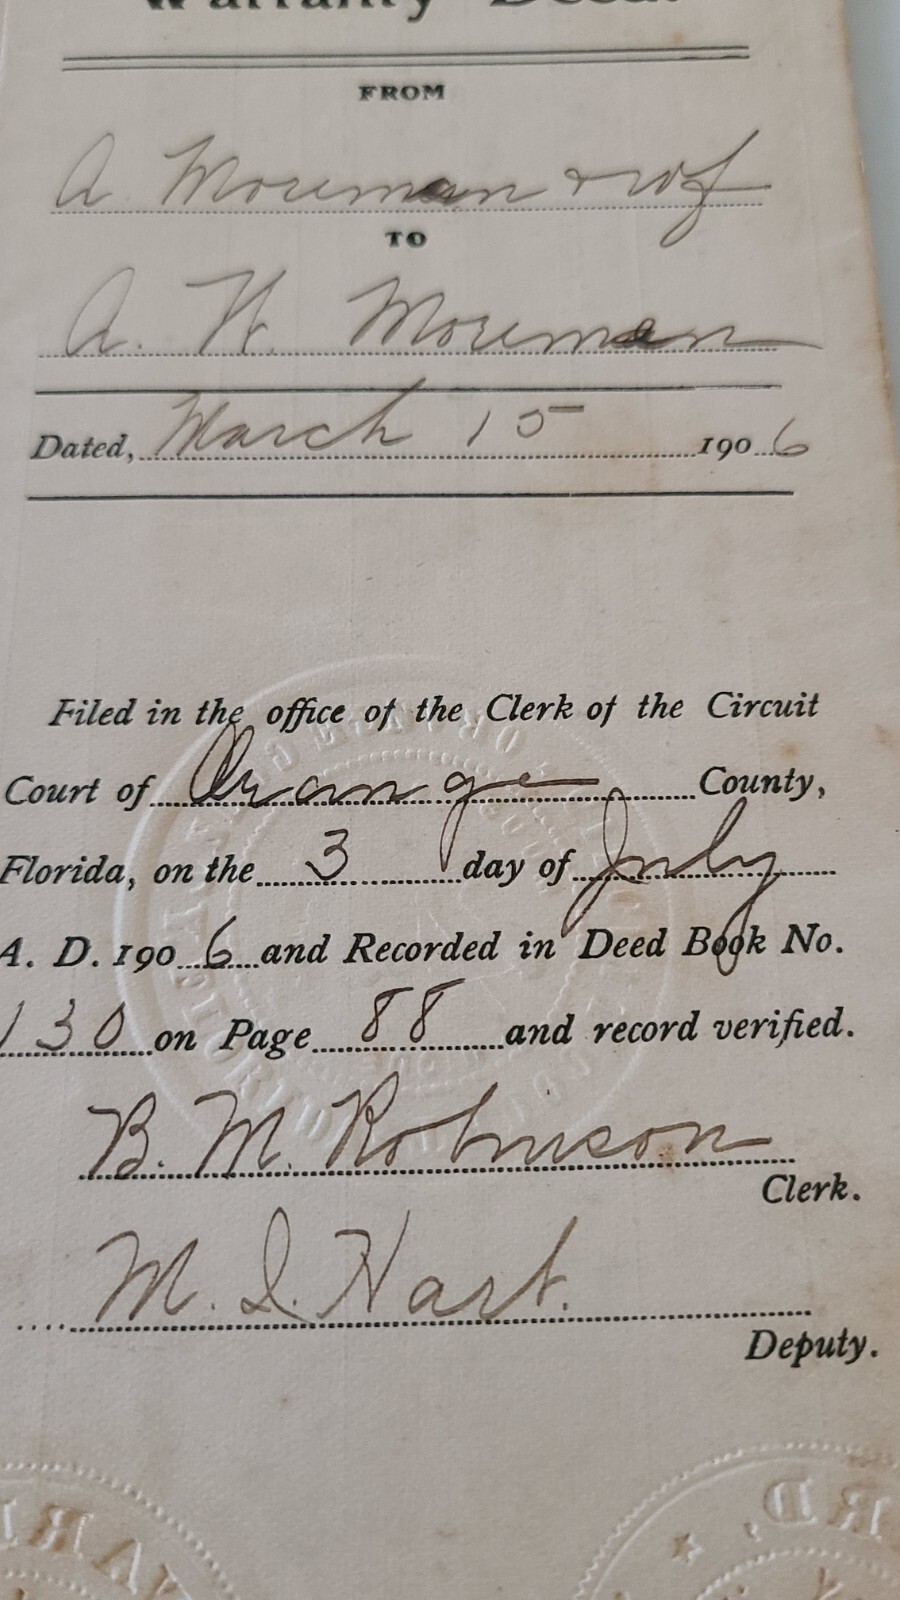 Warranty Deed.
FROM
A. Moreman & wf
TO
A. H. Moreman
Dated, March 15 1906
Filed in the office of the Clerk of the Circuit
Court of Orange County,
Florida, on the 3 day of July
A. D. 1906 and Recorded in Deed Book No.
130 on Page 88 and record verified.
B. M. Robinson
Clerk.
M. I. Hart.
Deputy.